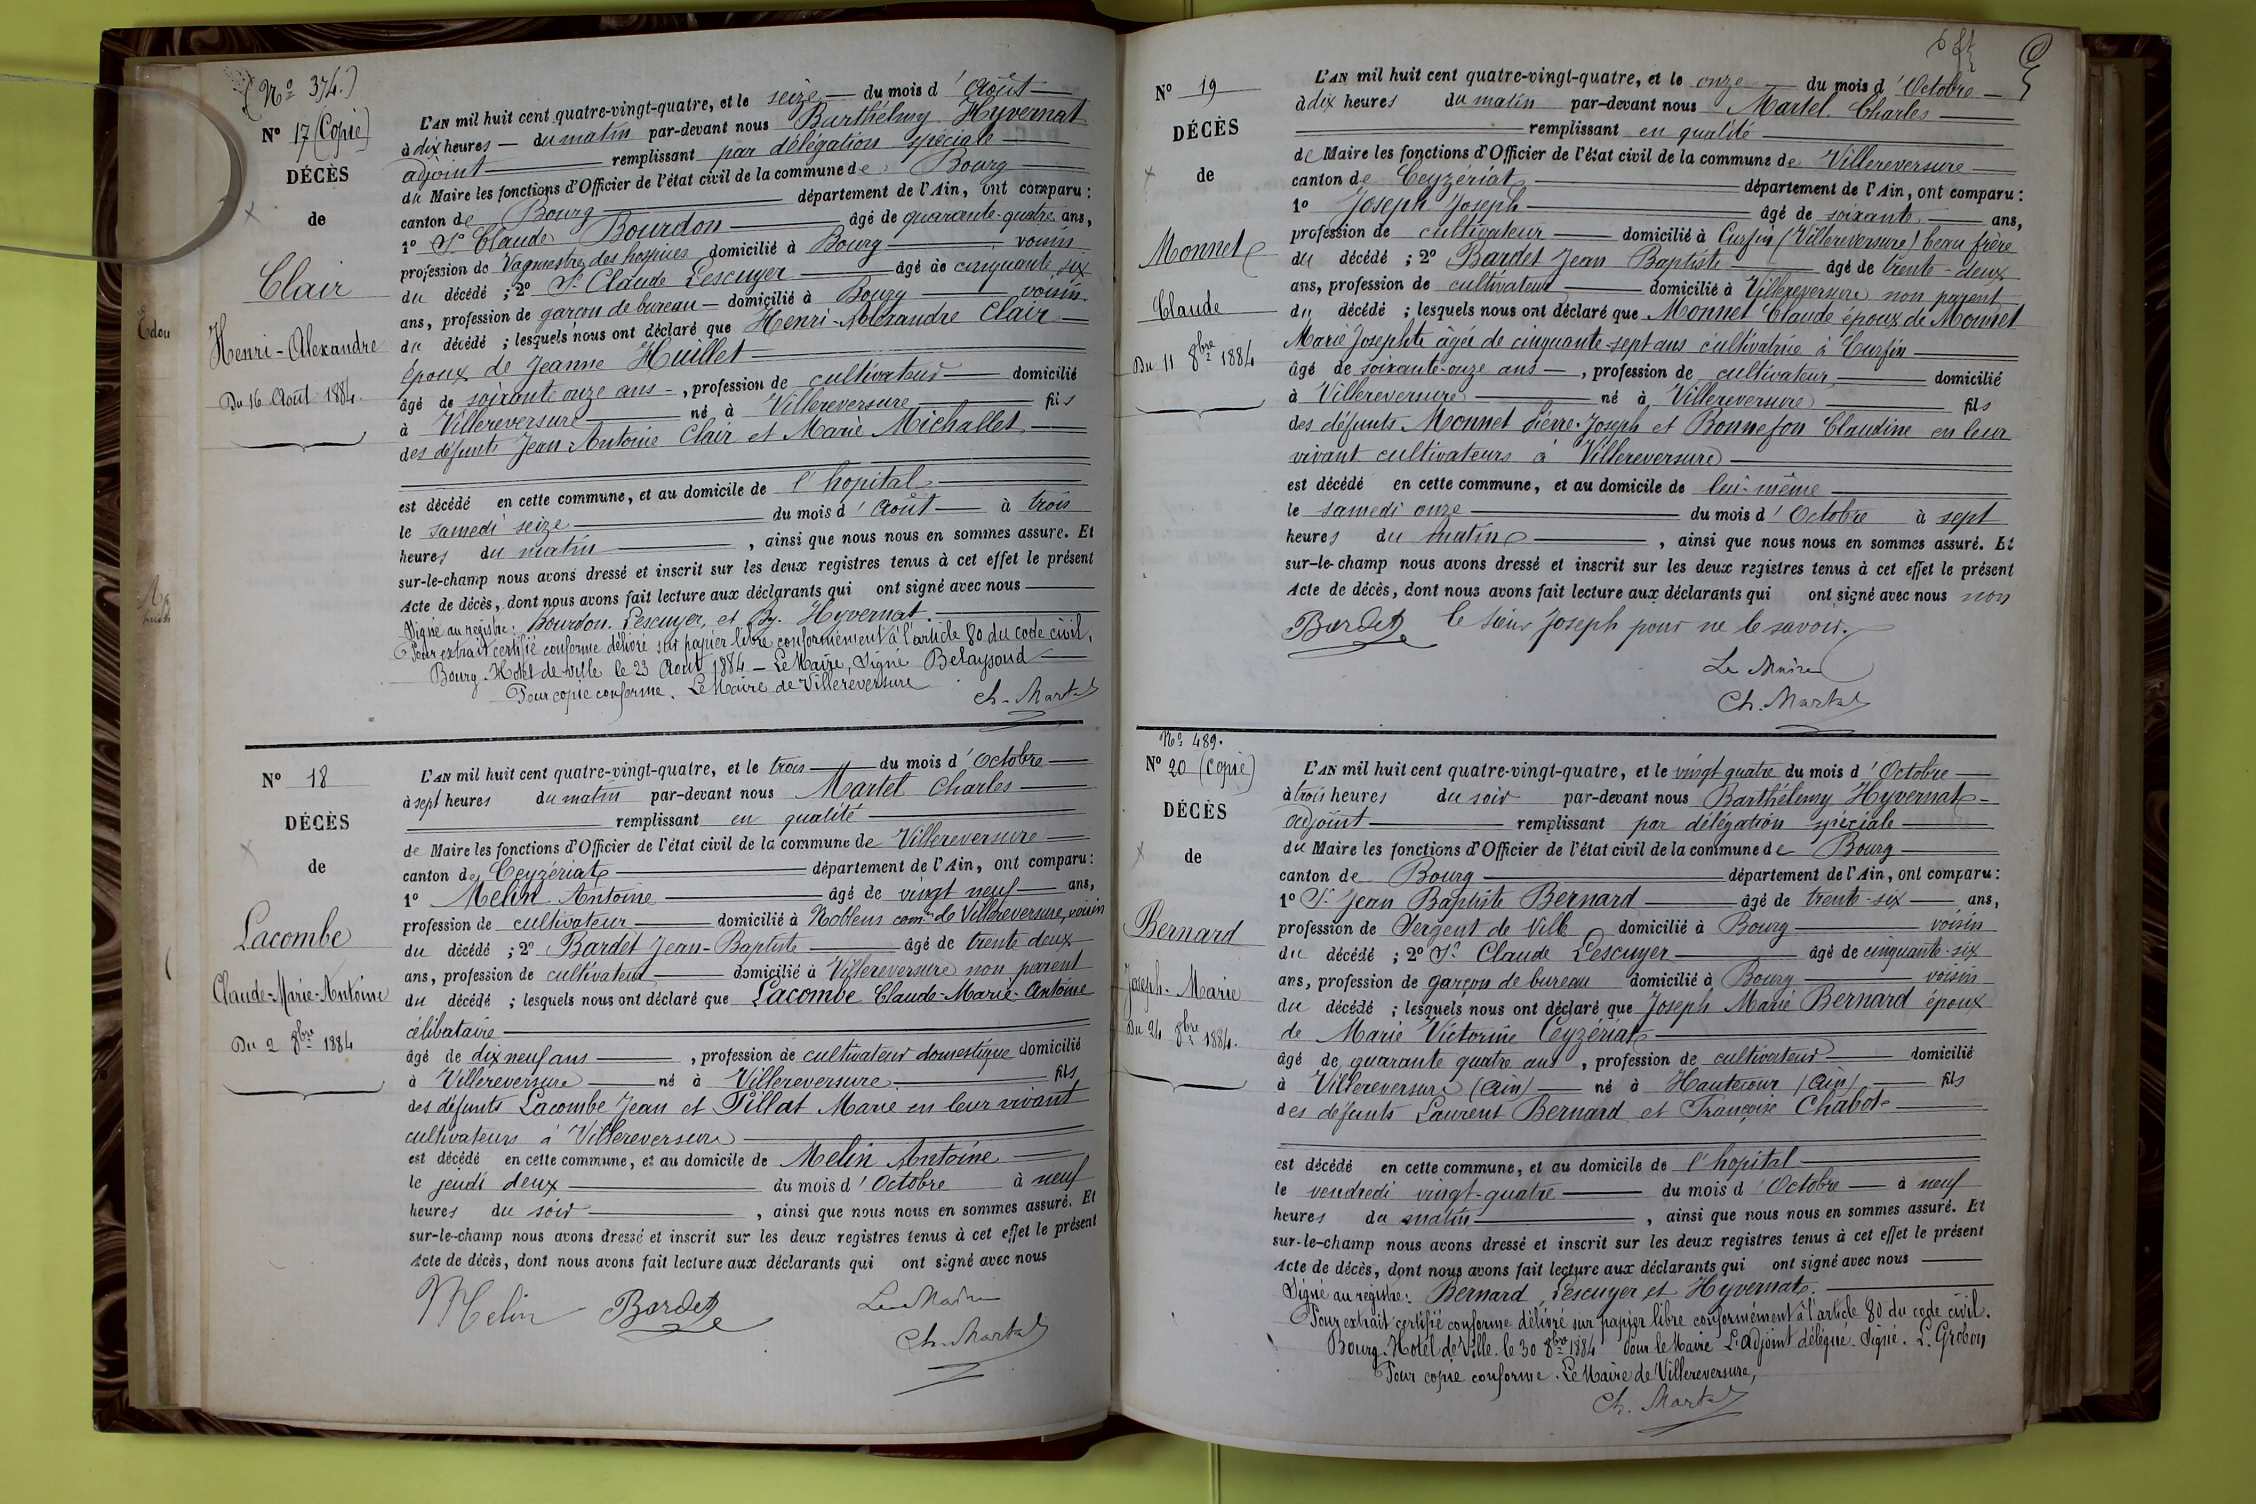 (Nº 374.)
Nº 17 (Copie)
DÉCÈS
de
Clair
Henri-Alexandre
Du 16 Août 1884.
L'AN mil huit cent quatre-vingt-quatre, et le seize du mois d'Août
à dix heures du matin par-devant nous Barthélemy Hyvernat
adjoint remplissant par délégation spéciale
du Maire les fonctions d'Officier de l'état civil de la commune de Bourg
canton de Bourg département de l'Ain, ont comparu :
1º Sr Claude Bourdon âgé de quarante-quatre ans,
profession de Vaguemestre des hospices domicilié à Bourg voisin
du décédé ; 2º Sr Claude Lescuyer âgé de cinquante six
ans, profession de garçon de bureau domicilié à Bourg voisin
du décédé ; lesquels nous ont déclaré que Henri-Alexandre Clair
époux de Jeanne Huillet
âgé de soixante onze ans, profession de cultivateur domicilié
à Villereversure né à Villereversure fils
des défunts Jean Antoine Clair et Marie Michallet
est décédé en cette commune, et au domicile de l'hopital
le samedi seize du mois d'Août à trois
heures du matin, ainsi que nous nous en sommes assuré. Et
sur-le-champ nous avons dressé et inscrit sur les deux registres tenus à cet effet le présent
Acte de décès, dont nous avons fait lecture aux déclarants qui ont signé avec nous
Signé au registre : Bourdon, Lescuyer, et By. Hyvernat.
Pour extrait certifié conforme délivré sur papier libre conformément à l'article 80 du code civil,
Bourg. Hôtel de ville le 23 Août 1884 - Le Maire, Signé
Pour copie conforme. Le Maire de Villereversure
Ch. Martel
Nº 18
DÉCÈS
de
Lacombe
Claude-Marie-Antoine
Du 2 8bre 1884
L'AN mil huit cent quatre-vingt-quatre, et le trois du mois d'Octobre
à sept heures du matin par-devant nous Martel Charles
remplissant en qualité
de Maire les fonctions d'Officier de l'état civil de la commune de Villereversure
canton de Ceyzériat département de l'Ain, ont comparu :
1º Melin Antoine âgé de vingt neuf ans,
profession de cultivateur domicilié à Noblens comne de Villereversure, voisin
du décédé ; 2º Bardet Jean-Baptiste âgé de trente deux
ans, profession de cultivateur domicilié à Villereversure non parent
du décédé ; lesquels nous ont déclaré que Lacombe Claude-Marie-Antoine
célibataire
âgé de dix neuf ans, profession de cultivateur domestique domicilié
à Villereversure né à Villereversure fils
des défunts Lacombe Jean et Pillat Marie en leur vivant
cultivateurs à Villereversure
est décédé en cette commune, et au domicile de Melin Antoine
le jeudi deux du mois d'Octobre à neuf
heures du soir, ainsi que nous nous en sommes assuré. Et
sur-le-champ nous avons dressé et inscrit sur les deux registres tenus à cet effet le présent
Acte de décès, dont nous avons fait lecture aux déclarants qui ont signé avec nous
Melin Bardet Le Maire
Ch. Martel
Nº 19
DÉCÈS
de
Monnet
Claude
Du 11 8bre 1884
L'AN mil huit cent quatre-vingt-quatre, et le onze du mois d'Octobre
à dix heures du matin par-devant nous Martel Charles
remplissant en qualité
de Maire les fonctions d'Officier de l'état civil de la commune de Villereversure
canton de Ceyzériat département de l'Ain, ont comparu :
1º Joseph Joseph âgé de soixante ans,
profession de cultivateur domicilié à Cursin (Villereversure) beau frère
du décédé ; 2º Bardet Jean Baptiste âgé de trente-deux
ans, profession de cultivateur domicilié à Villereversure non parent
du décédé ; lesquels nous ont déclaré que Monnet Claude époux de Monnet
Marie Josephte âgée de cinquante-sept ans cultivatrice à Cursin
âgé de soixante-onze ans, profession de cultivateur, domicilié
à Villereversure né à Villereversure fils
des défunts Monnet Pierre-Joseph et Bonnefon Claudine en leur
vivant cultivateurs à Villereversure
est décédé en cette commune, et au domicile de lui-même
le samedi onze du mois d'Octobre à sept
heures du matin, ainsi que nous nous en sommes assuré. Et
sur-le-champ nous avons dressé et inscrit sur les deux registres tenus à cet effet le présent
Acte de décès, dont nous avons fait lecture aux déclarants qui ont signé avec nous non
Bardet le sieur Joseph pour ne le savoir.
Le Maire
Ch. Martel
Nº 489.
Nº 20 (Copie)
DÉCÈS
de
Bernard
Joseph-Marie
Du 24 8bre 1884.
L'AN mil huit cent quatre-vingt-quatre, et le vingt quatre du mois d'Octobre
à trois heures du soir par-devant nous Barthélemy Hyvernat
adjoint remplissant par délégation spéciale
du Maire les fonctions d'Officier de l'état civil de la commune de Bourg
canton de Bourg département de l'Ain, ont comparu :
1º Sr Jean Baptiste Bernard âgé de trente-six ans,
profession de Sergent de Ville domicilié à Bourg voisin
du décédé ; 2º Sr Claude Lescuyer âgé de cinquante-six
ans, profession de garçon de bureau domicilié à Bourg voisin
du décédé ; lesquels nous ont déclaré que Joseph Marie Bernard époux
de Marie Victorine Ceyzériat
âgé de quarante quatre ans, profession de cultivateur domicilié
à Villereversure (Ain) né à Hautecour (Ain) fils
des défunts Laurent Bernard et Françoise Chabot
est décédé en cette commune, et au domicile de l'hopital
le vendredi vingt-quatre du mois d'Octobre à neuf
heures du matin, ainsi que nous nous en sommes assuré. Et
sur-le-champ nous avons dressé et inscrit sur les deux registres tenus à cet effet le présent
Acte de décès, dont nous avons fait lecture aux déclarants qui ont signé avec nous
Signé au registre : Bernard, Lescuyer et Hyvernat.
Pour extrait certifié conforme délivré sur papier libre conformément à l'article 80 du code civil.
Bourg. Hotel de Ville. le 30 8bre 1884 Pour le Maire L'adjoint délégué. Signé. L. Grobon
Pour copie conforme. Le Maire de Villereversure,
Ch. Martel